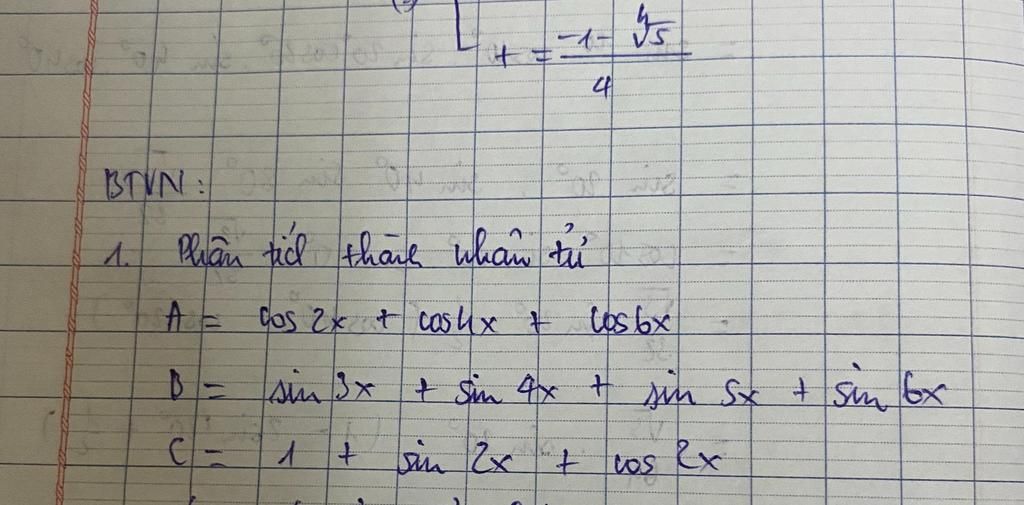 t = (-1 - ∜5) / 4
BTVN:
1. Phân tích thành nhân tử
A = cos 2x + cos 4x + cos 6x
B = sin 3x + sin 4x + sin 5x + sin 6x
C = 1 + sin 2x + cos 2x